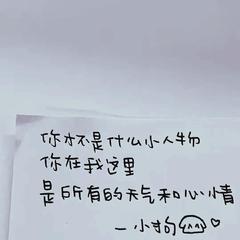 你才不是什么小人物
你在我这里
是所有的天气和心情
—小